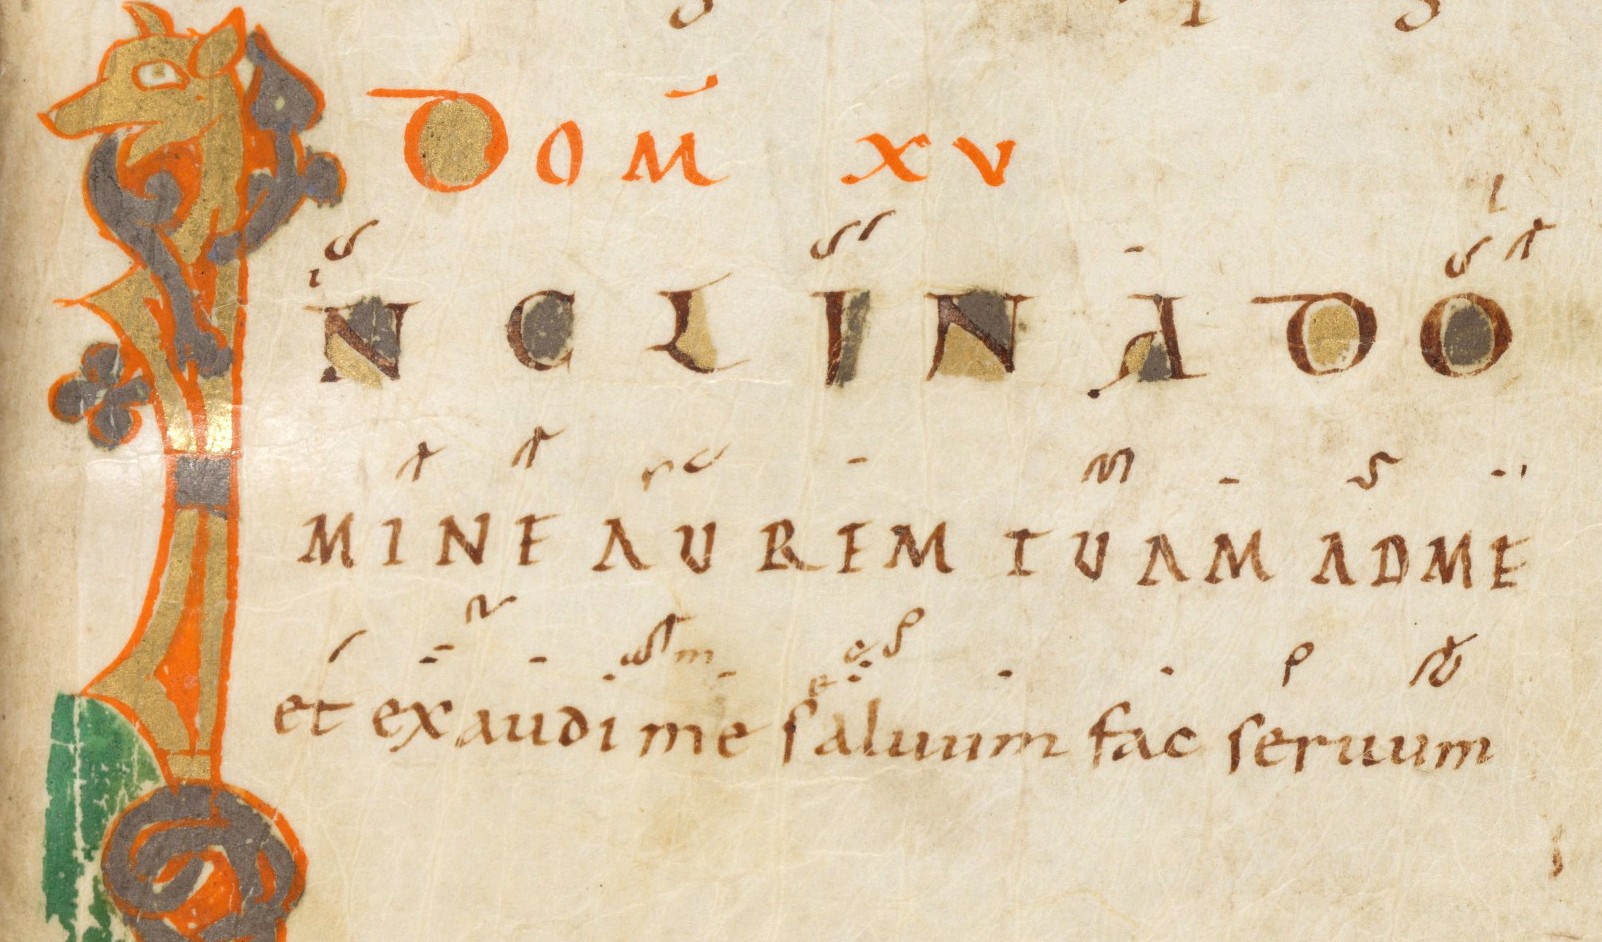 Dom̄ xv
INCLINA DO
MINE AUREM TUAM AD ME
et exaudi me saluum fac seruum